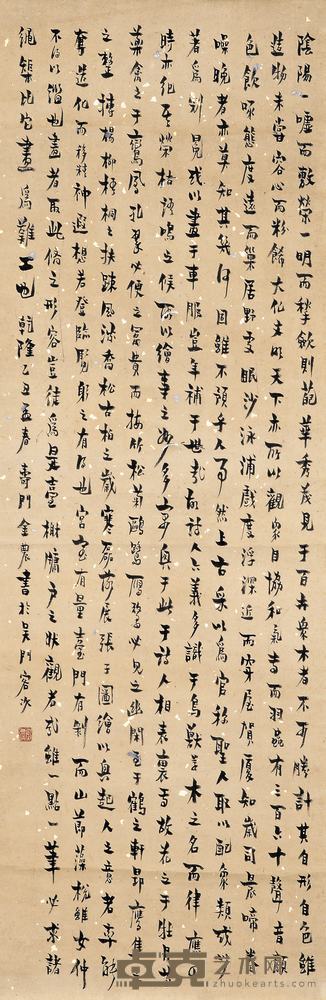 陰陽一噓而敷榮一明而揫斂則葩華秀茂見于百卉衆木者不可勝計其自形自色雖
造物未嘗容心而粉飾大化文明天下亦所以觀衆目協和氣焉而羽蟲有三百六十聲音顏
色飲啄態度遠而巢居野處眠沙泳浦戲度浮深近而穿屋賀厦知歲司晨啼春
噪晚者亦莫知其幾何固雖不預乎人事然上古采以爲官称聖人取以配象類或以
著爲冠冕或以畫于車服豈無補于世哉故詩人六義多識于鳥獸草木之名而律應四
時亦紀其榮枯語鳴之候所以繪事之妙多寓興于此于詩人相表裏焉故花之于牡丹芍
藥禽之于鸞鳳孔翠必使之富貴而梅竹松菊鷗鷺雁鶩必見之幽閒至于鶴之軒昂鷹隼
之擊搏楊柳梧桐之扶疎風流喬松古柏之歲寒磊落展張于圖繪以興起人之意者率能
奪造化而移精神遐想若登臨覽物之有得也宮室有量臺門有制而山節藻梲雖文仲
不得以濫也畫者取此備之形容豈徒爲是臺榭牖戶之壯觀者哉雖一點一筆必求諸
繩榘比它畫爲難工也 乾隆乙丑孟春壽門金農書於吳門客次
卓克艺术网
www.zhuokearts.com